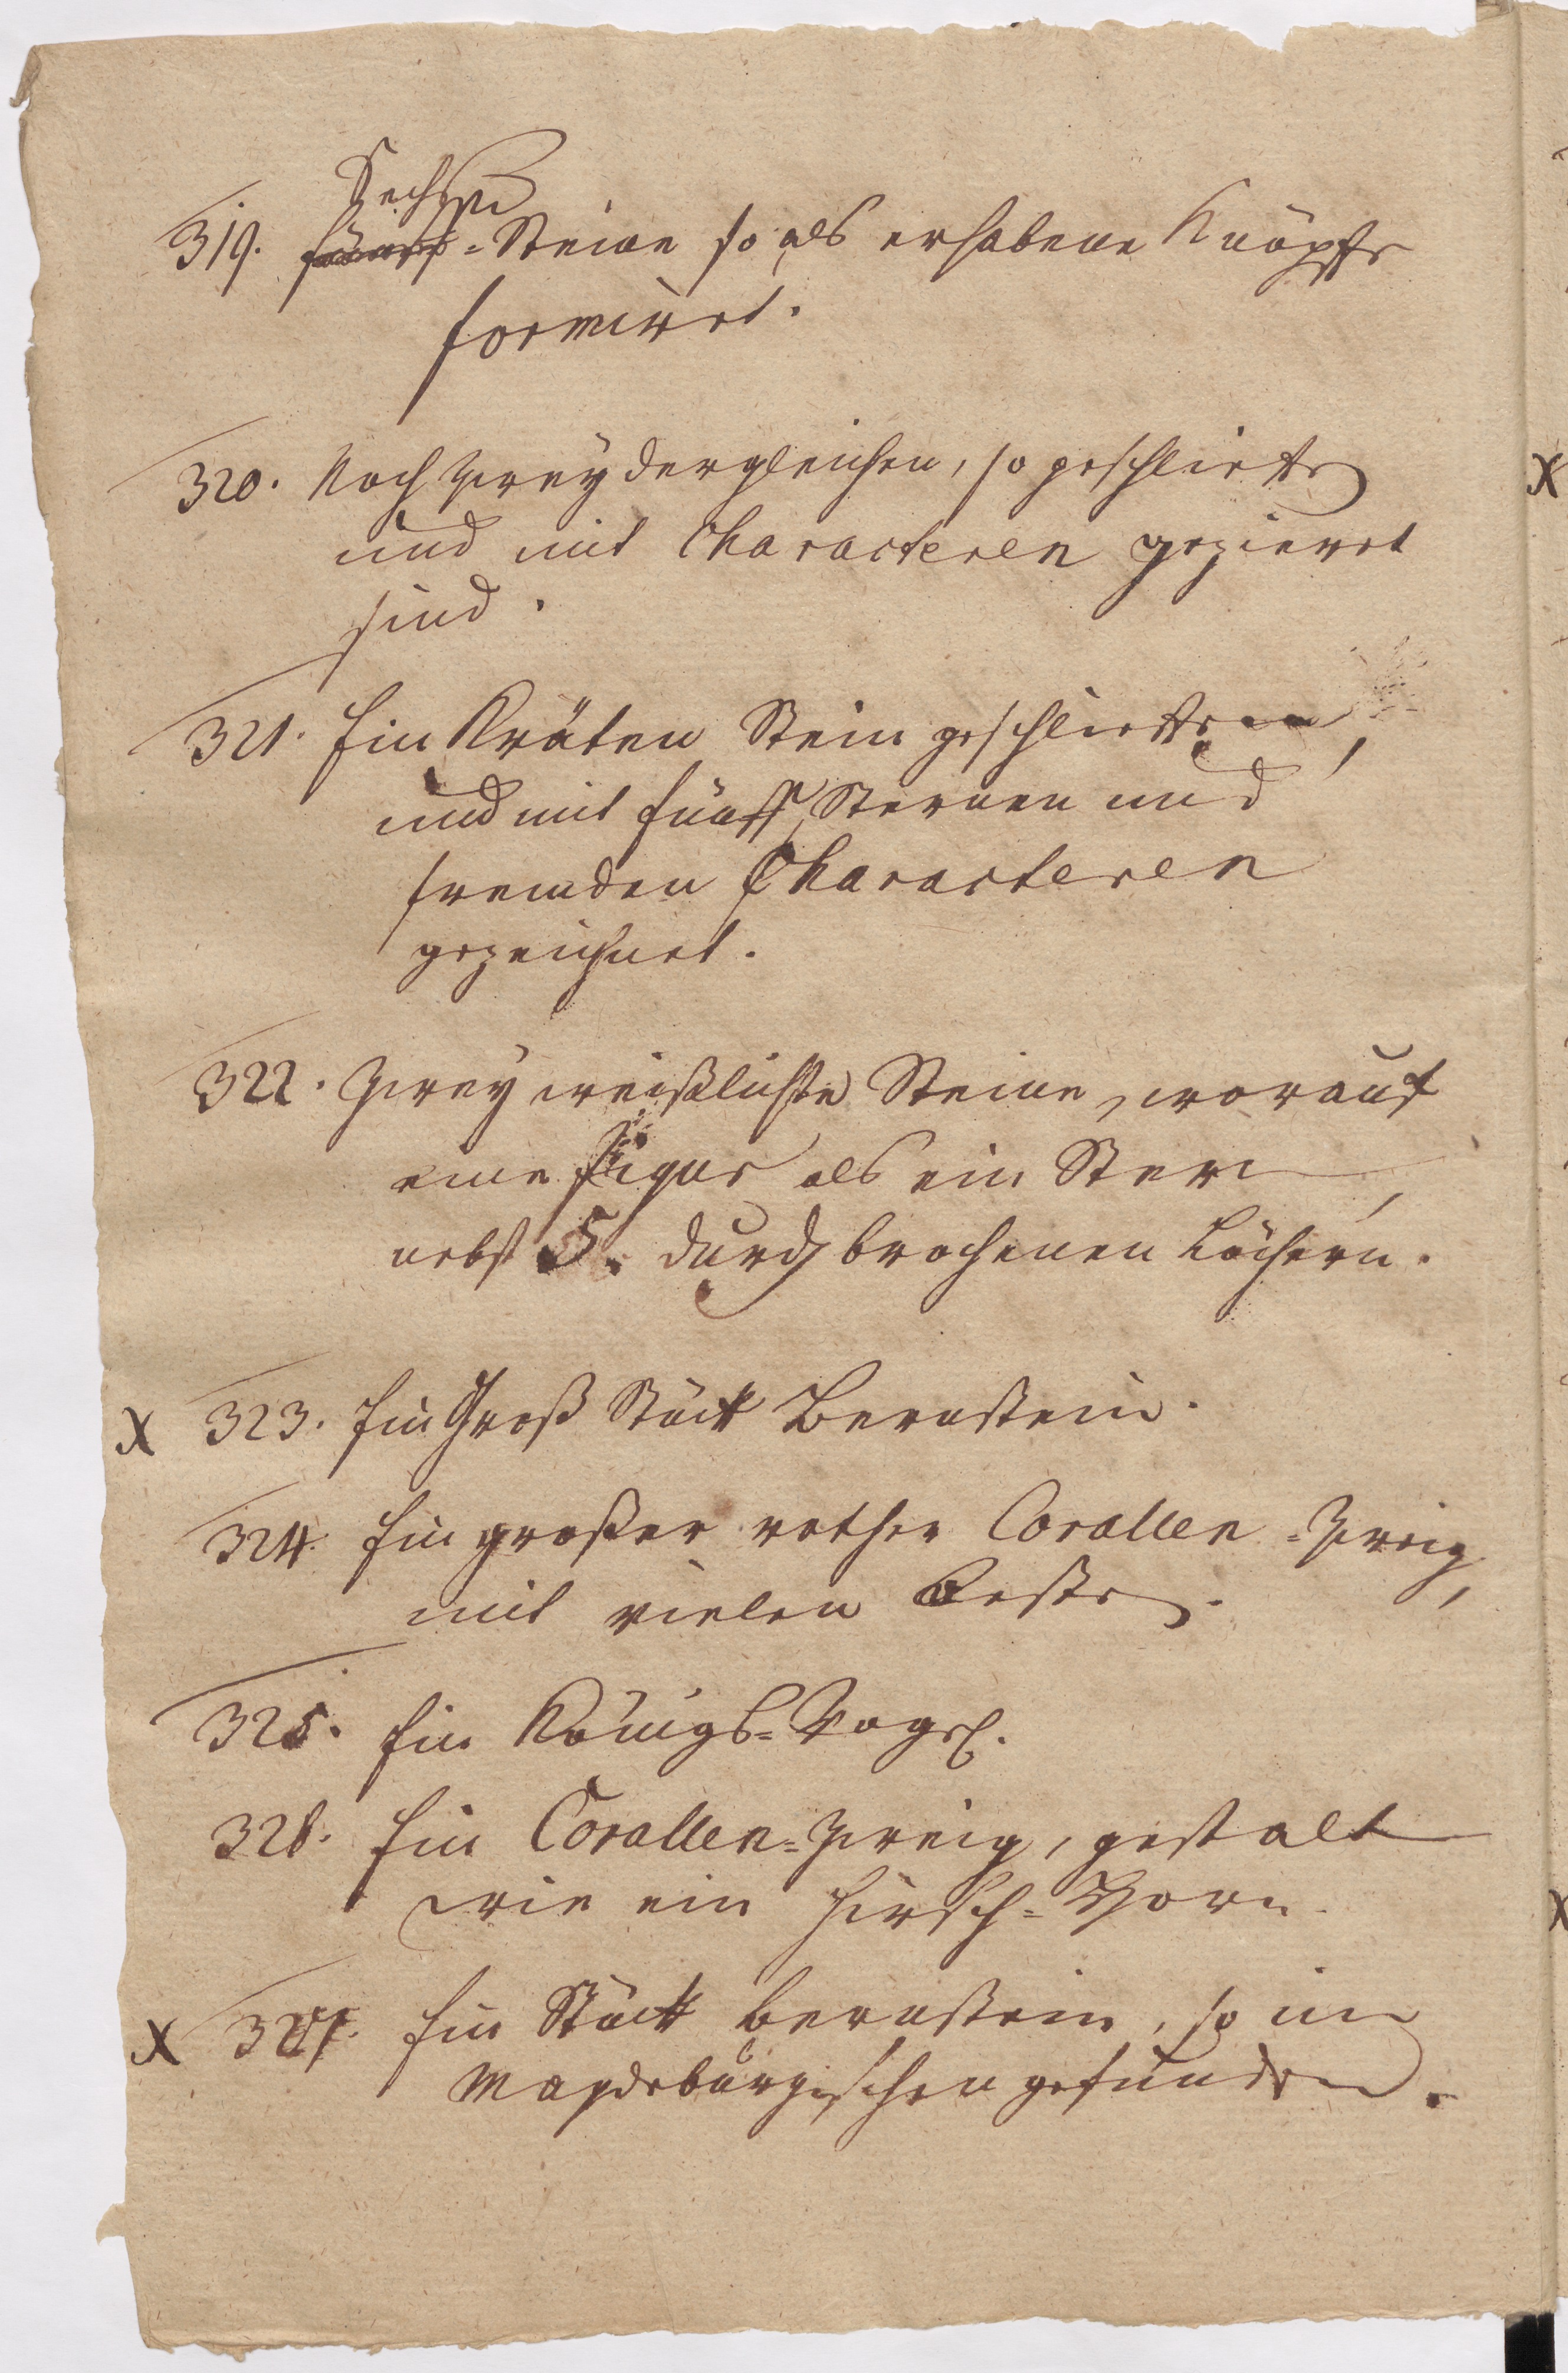 Sechs
319. fünff=Steine so als erhabene Knöpffe
formirt.
320. Noch zwey dergleichen, so geschlieffen
und mit Characteren gezieret
sind.
321. Ein Kröten Stein geschlieffen,
und mit fünff Sternen und
fremden Characteren
gezeichnet.
322. Zwey weißlichte Steine, worauf
eine Figur als ein Stern,
nebst 5. durchbrochenen Löchern.
x 323. Ein Groß Stück Bernstein.
324. Ein großer rother Corallen=Zweig,
mit vielen Aesten.
325. Ein Königs=Vogel.
326. Ein Corallen=Zweig, gestalt
wie ein Hirsch=Horn.
x 327. Ein Stück Bernstein, so im
Magdeburgischen gefunden.
x
x